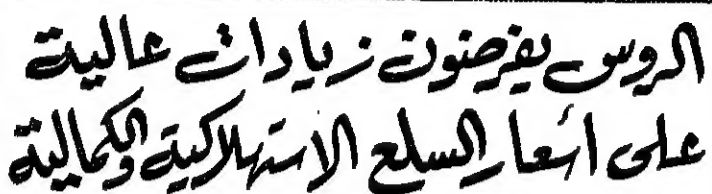 الروس يفرضون زيادات عالية
على أسعار السلع الاستهلاكية والكمالية